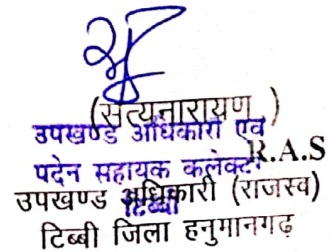 (सत्यनारायण)
उपखण्ड अधिकारी एवं
R.A.S
पदेन सहायक कलेक्टर
उपखण्ड अधिकारी (राजस्व)
टिब्बी
टिब्बी जिला हनुमानगढ़